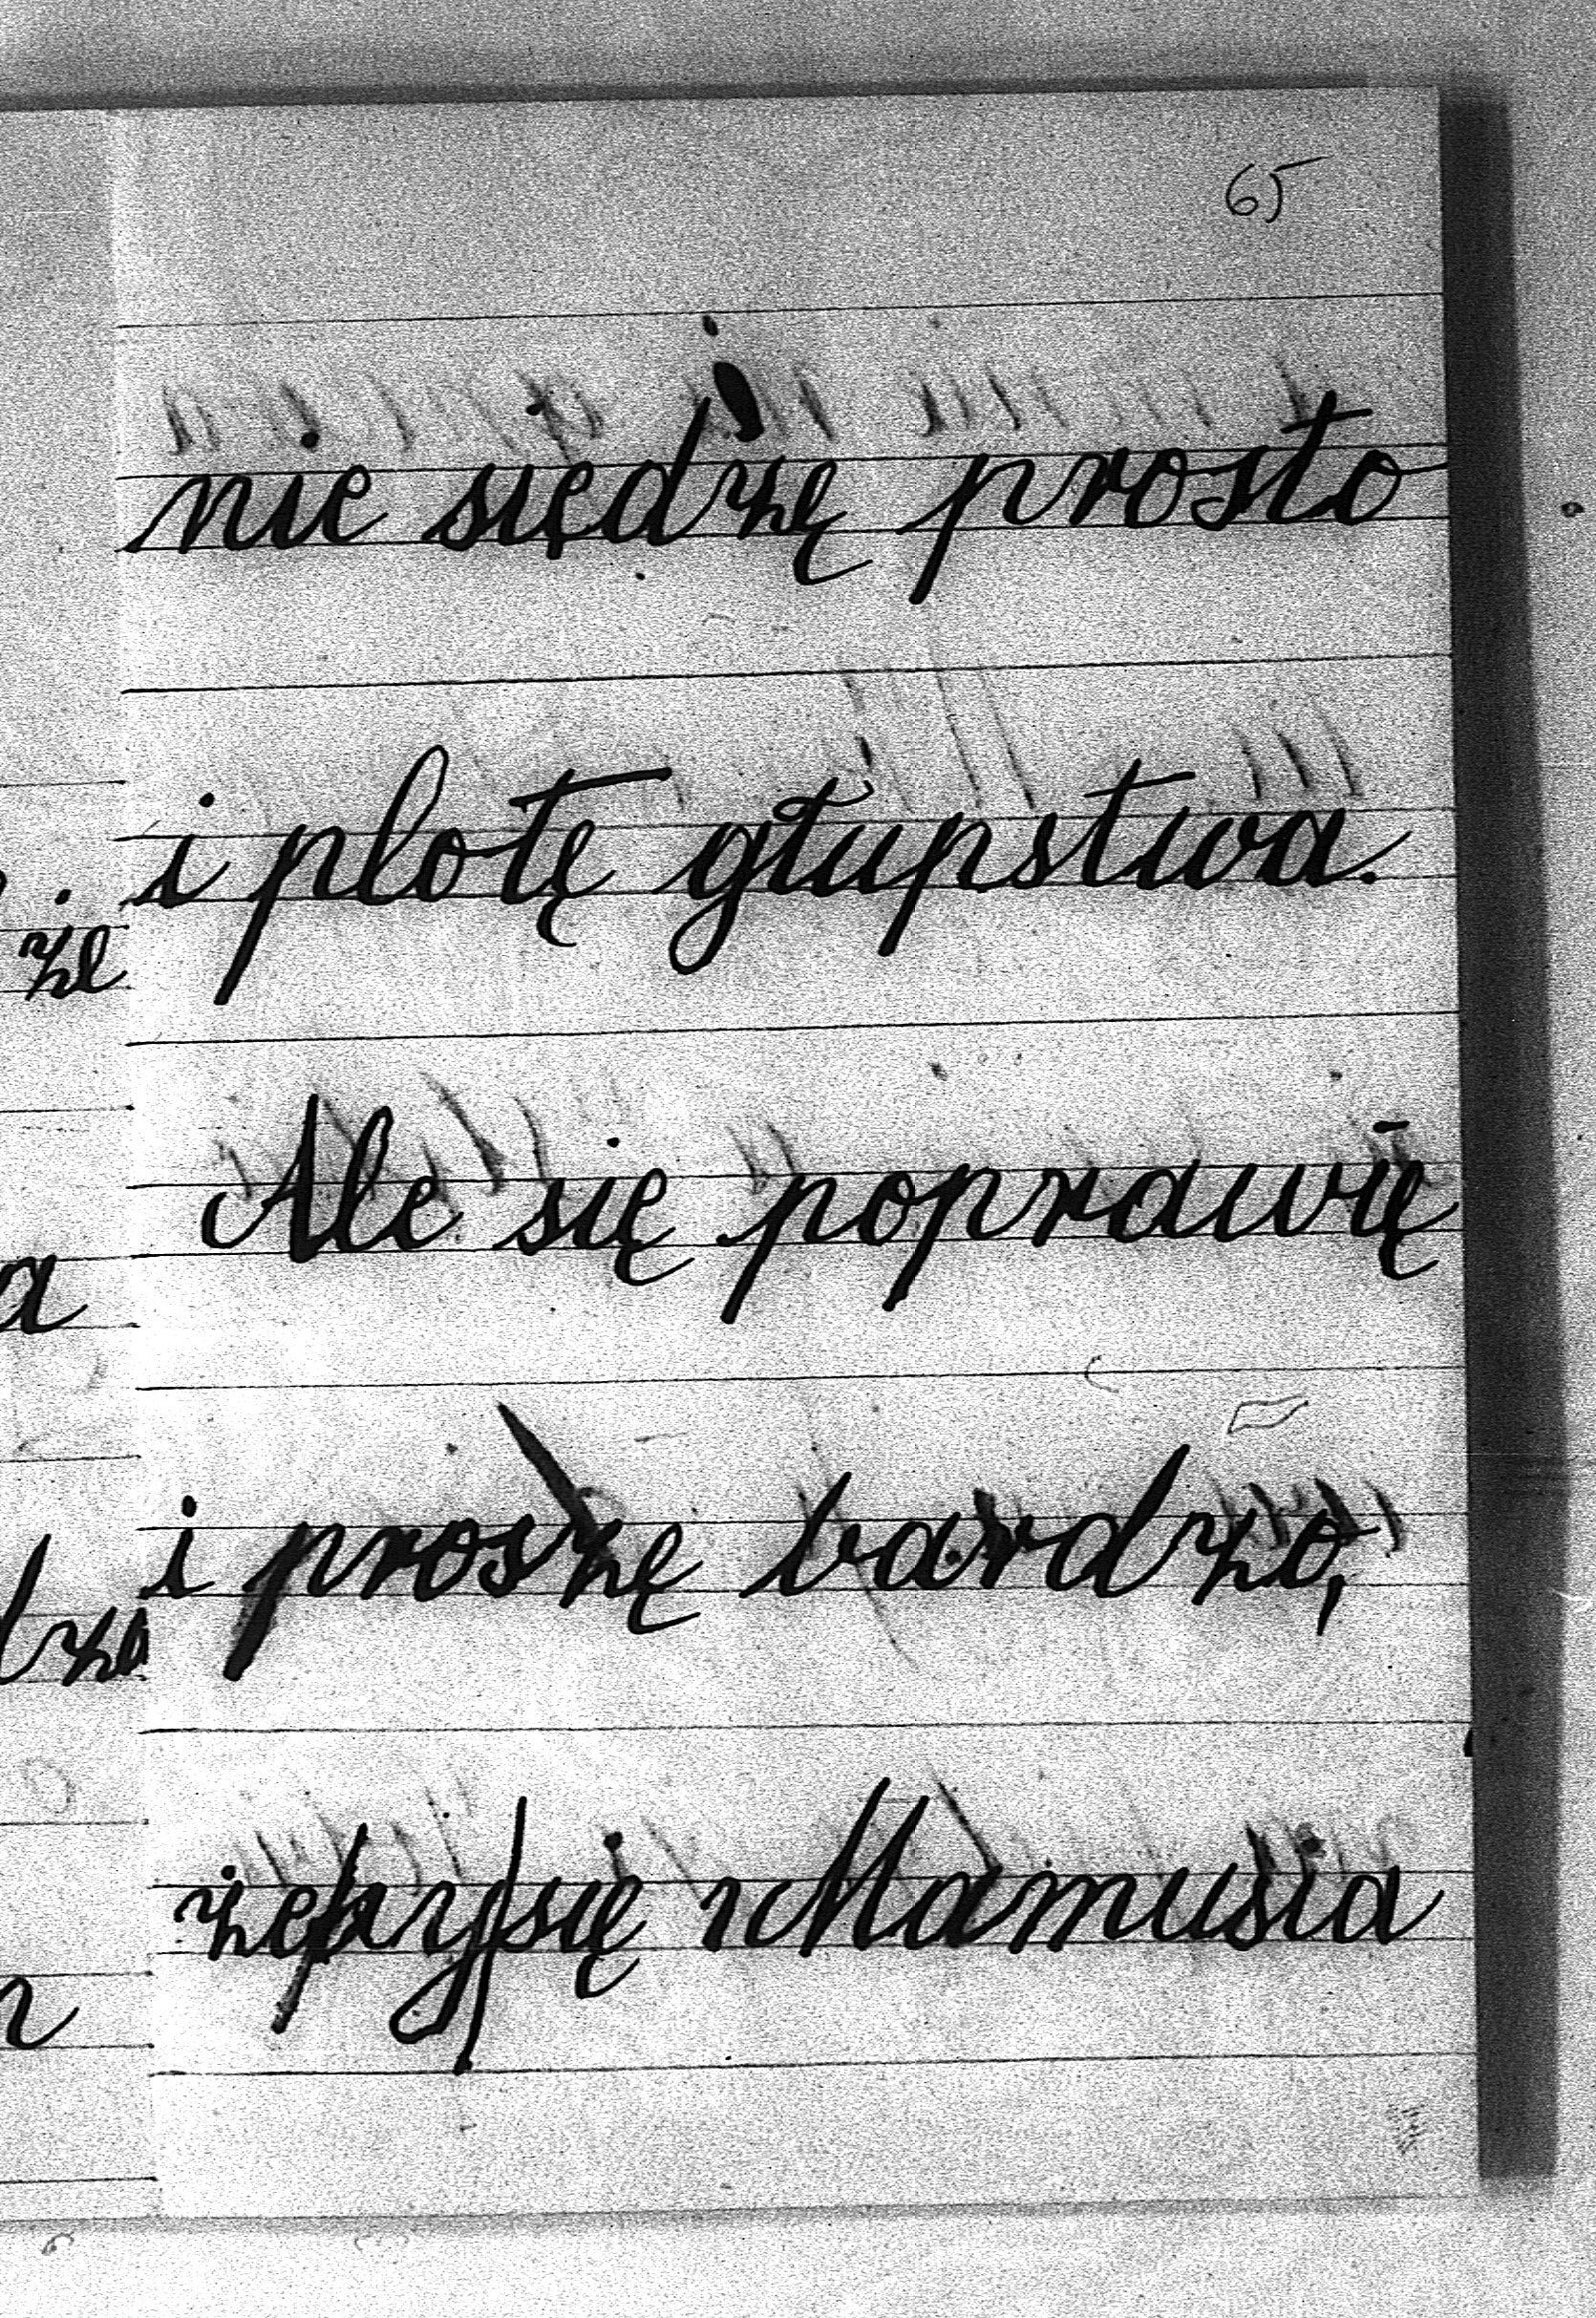 65
nie siędzę prosto
i plotę głupstwa.
Ale się poprawię
i proszę bardzo,
żeby się Mamusia
że
a
dza